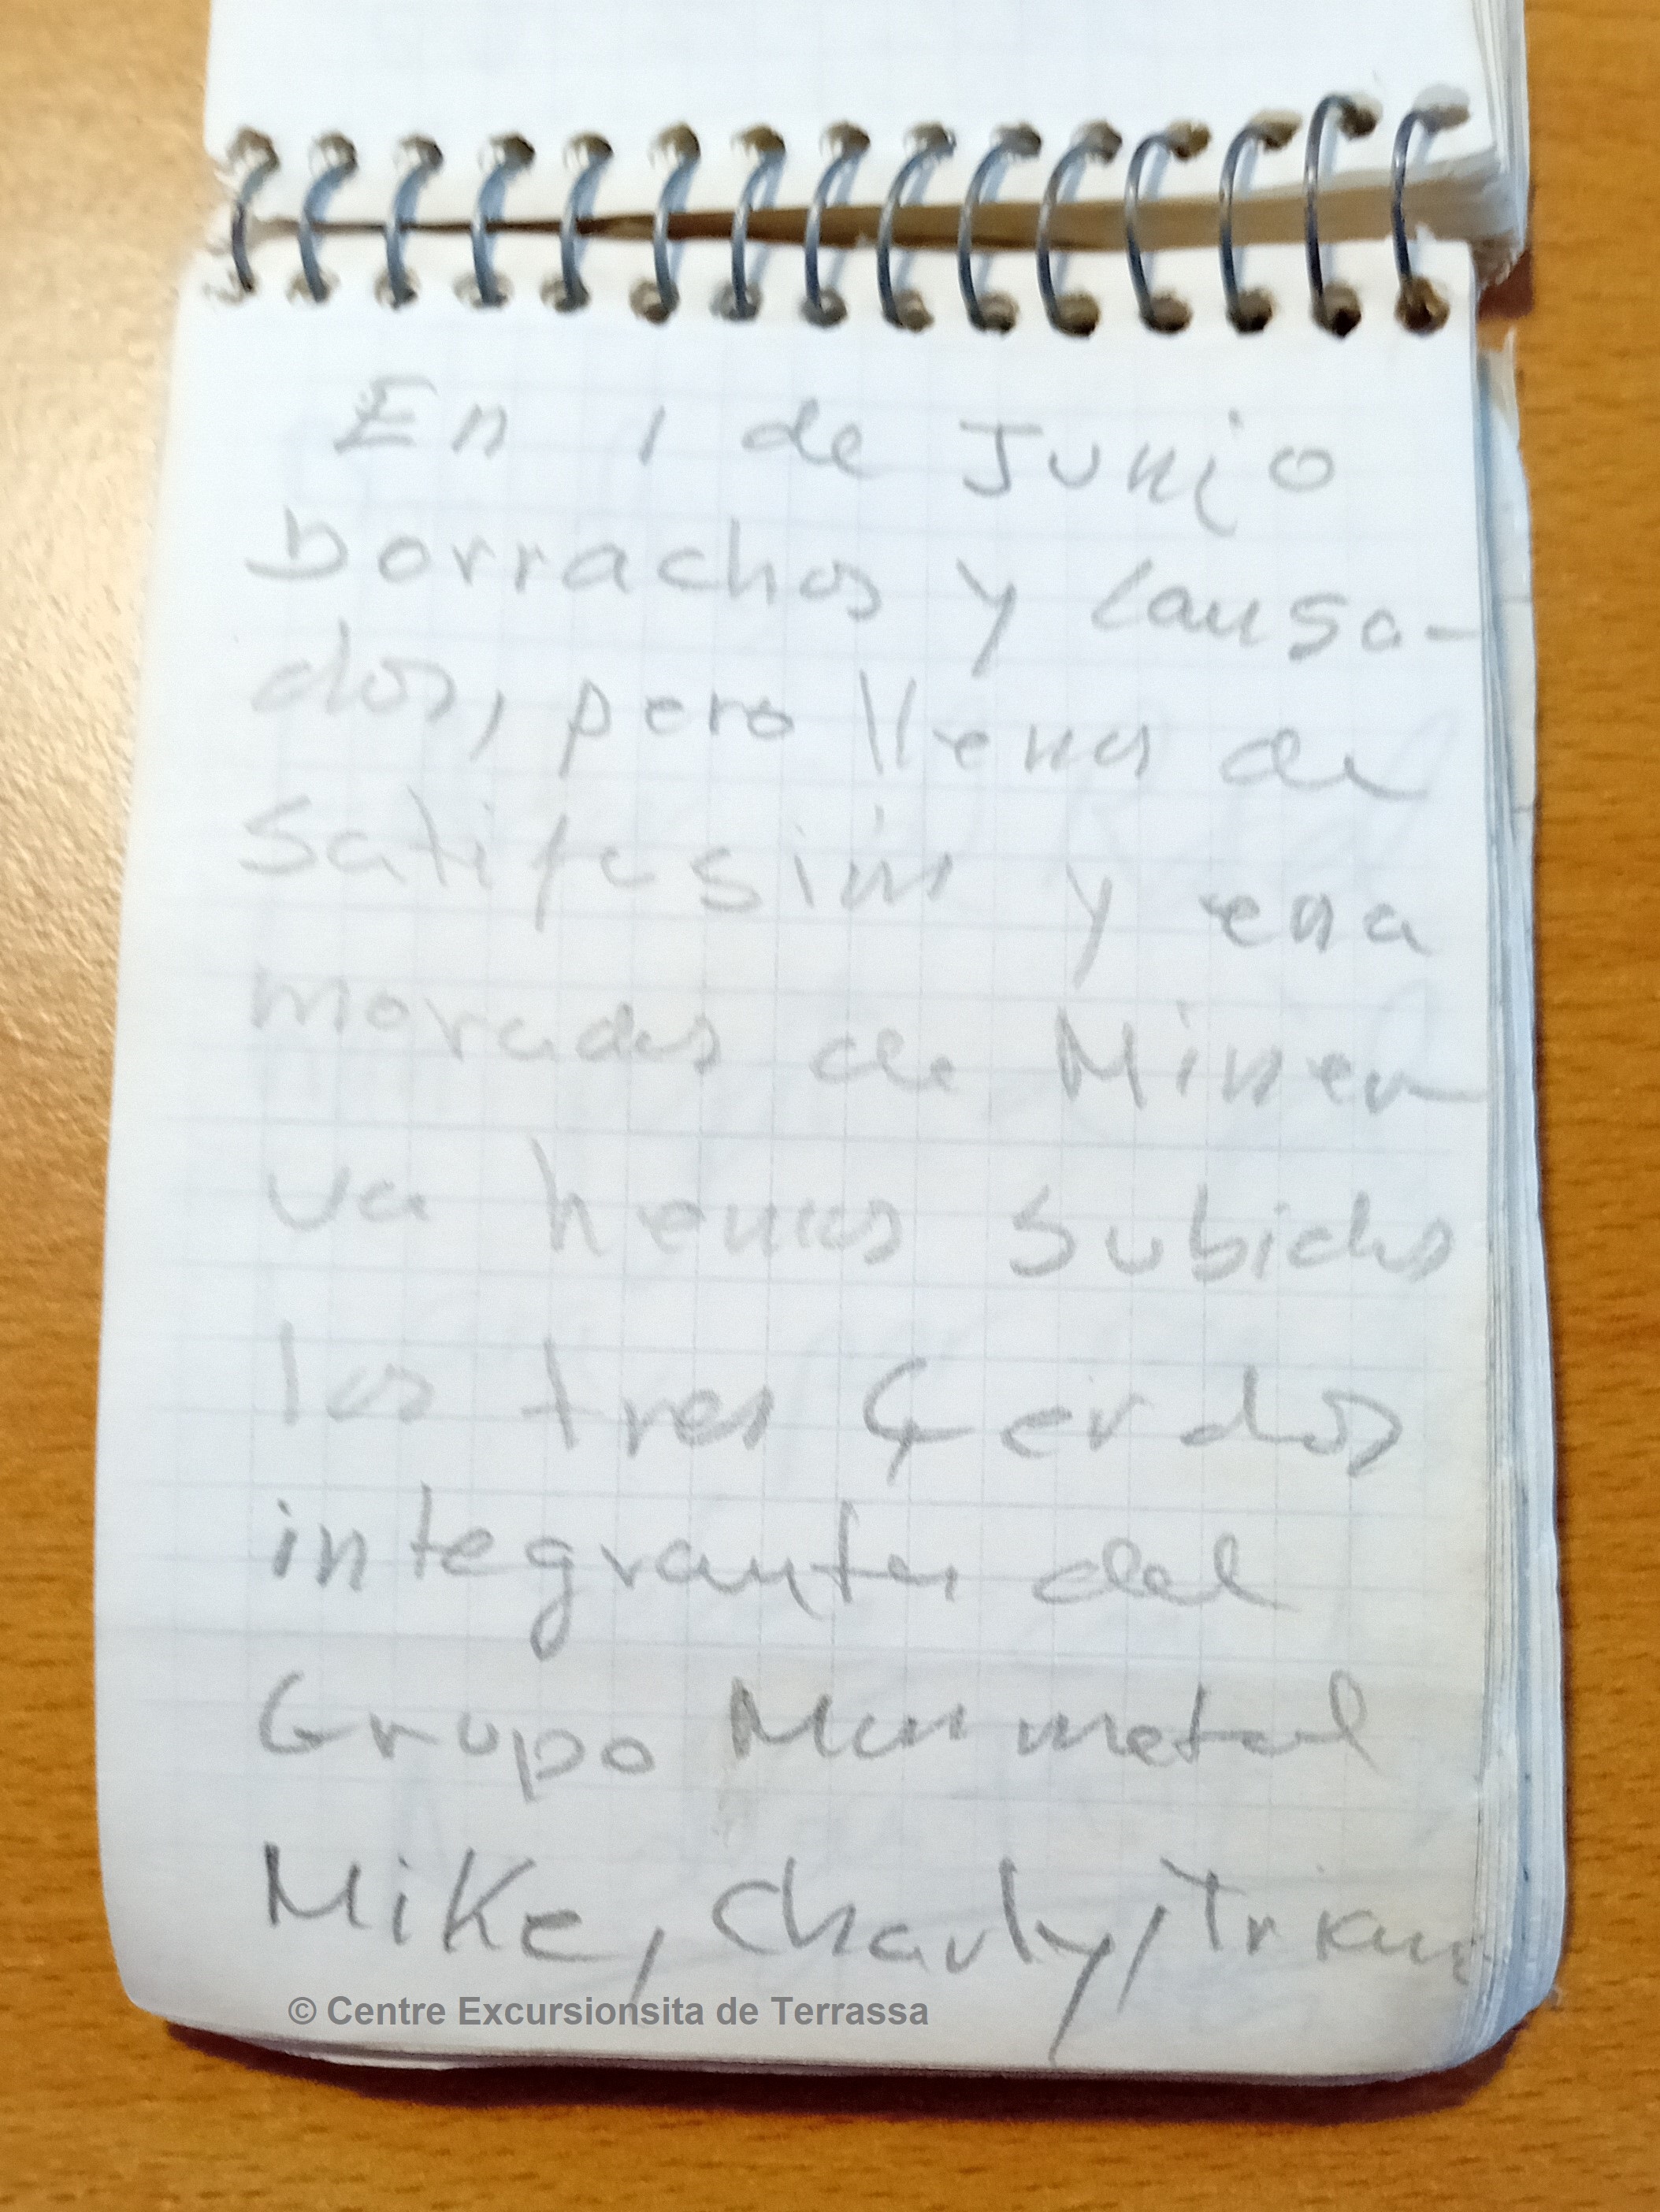 En 1 de Junio
borrachos y cansa-
dos, pero llenos de
satifesión y ena
morados de Miner
va hemos subidos
los tres Çerdos
integrantes del
Grupo metal
Mike, Charly,
© Centre Excursionsita de Terrassa